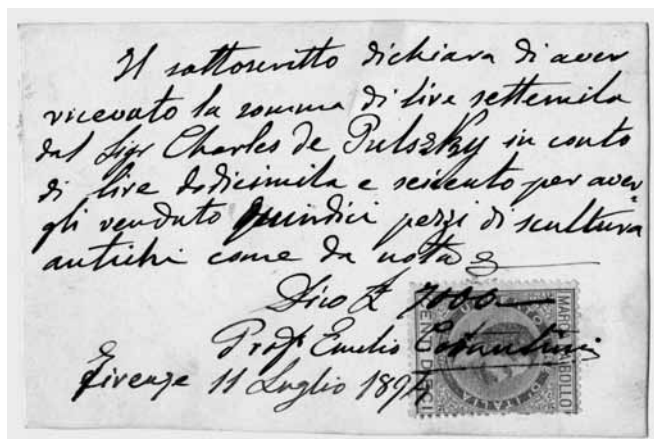 Il sottoscritto dichiara di aver
ricevuto la somma di lire settemila
dal Sigr Charles de Pulszky in conto
di lire dodicimila e seicento per aver
gli venduto quindici pezzi di scultura
antichi come da nota
Dico £ 7000
Profr Emilio Costantini
Firenze 11 Luglio 1894
MARCA DA BOLLO